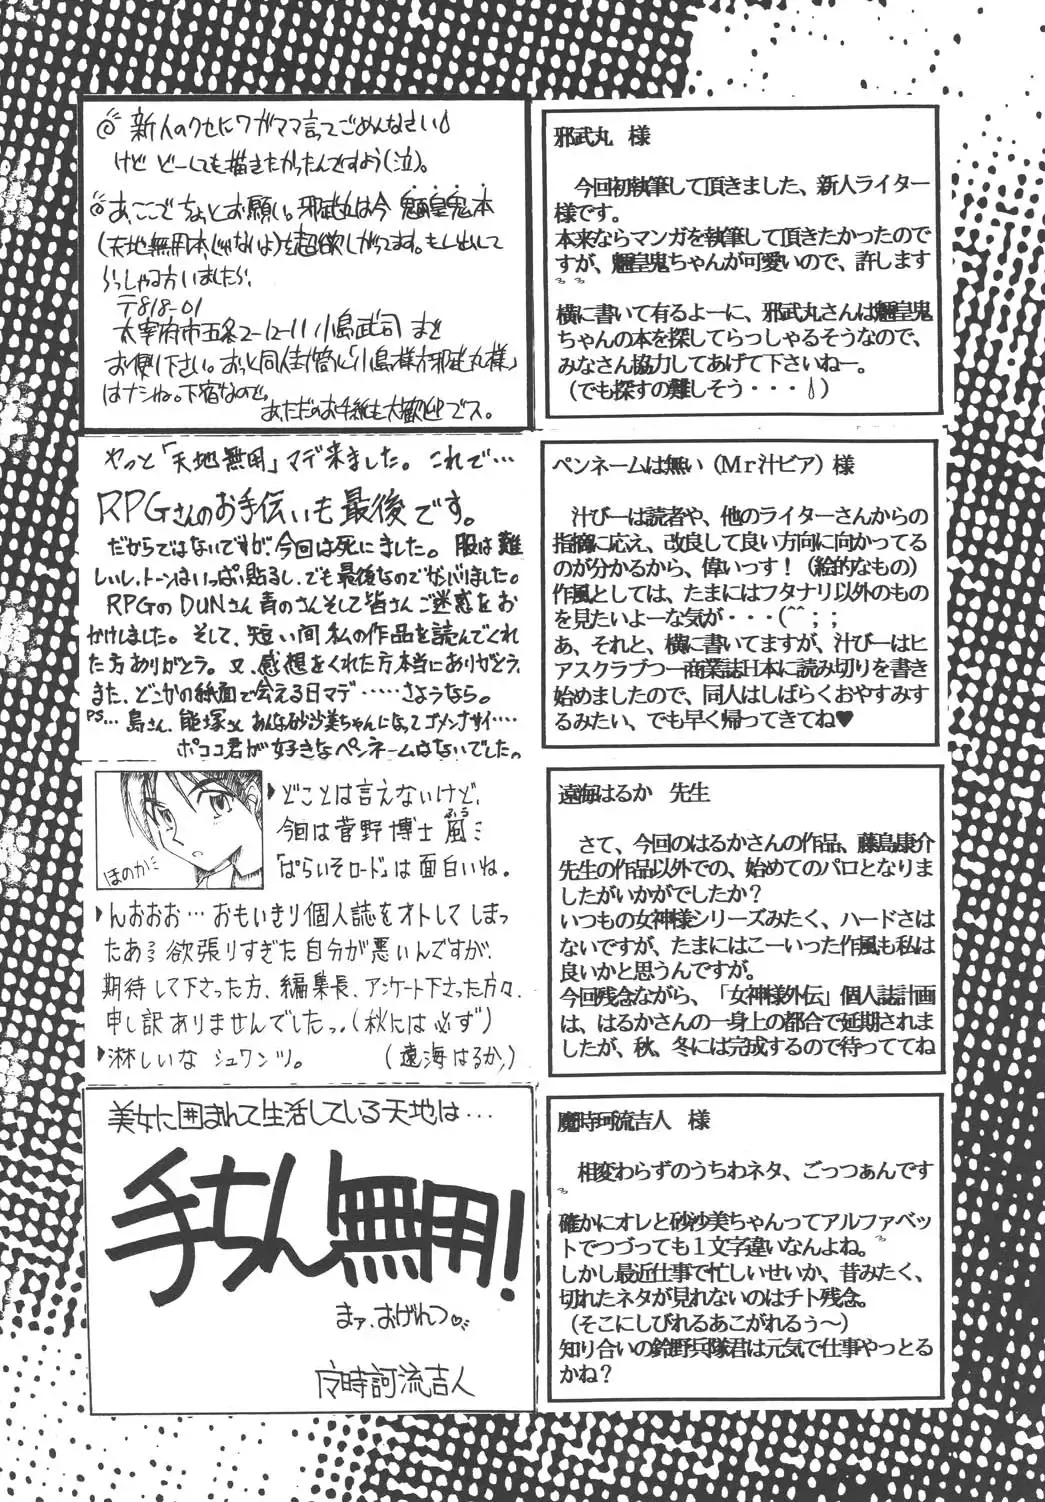 ◎新人のクセにワガママ言ってごめんなさい
けど どーしても描きたかったんですよう(泣)。
◎あ、ここでちょっとお願い。邪武丸は今 魎皇鬼本
(天地無用本じゃないよ)を超欲しがってます。もし出して
らっしゃる方いましたら、
〒818-01
太宰府市五条2-12-11 小島武司 まで
お便り下さい。おっと同人封筒に「小島様方邪武丸様」
はナシね。下宿なので。
あ、ただのお手紙も大歓迎デス。
邪武丸 様
今回初執筆して頂きました、新人ライター
様です。
本来ならマンガを執筆して頂きたかったので
すが、魎皇鬼ちゃんが可愛いので、許します
横に書いて有るよーに、邪武丸さんは魎皇鬼
ちゃんの本を探してらっしゃるそうなので、
みなさん協力してあげて下さいねー。
(でも探すの難しそう・・・)
やっと「天地無用」マデ来ました。これで…
RPGさんのお手伝いも最後です。
だからではないですが今回は死にました。服は難
しいし、トーンはいっぱい貼るし、でも最後なのでガンバりました。
RPGのDUNさん青のさんそして皆さんご迷惑をお
かけしました。そして、短い間私の作品を読んでくれ
た方ありがとう。又、感想をくれた方本当にありがとう。
また、どこかの紙面で会える日マデ……さようなら。
PS… 島さん、熊塚さん あんな砂沙美ちゃんになってゴメンナサイ….
ポココ君が好きなペンネームはないでした。
ペンネームは無い(Mr汁ビア)様
汁びーは読者や、他のライターさんからの
指摘に応え、改良して良い方向に向かってる
のが分かるから、偉いっす!(絵的なもの)
作風としては、たまにはフタナリ以外のもの
を見たいよーな気が・・・(^^;;
あ、それと、横に書いてますが、汁びーはヒ
アスクラブつー商業誌日本に読み切りを書き
始めましたので、同人はしばらくおやすみす
るみたい、でも早く帰ってきてね♥
ほのか
どことは言えないけど、
今回は菅野博士風
ふう
「ぱらいそロード」は面白いね。
んおおお…おもいきり個人誌をオトしてしまっ
たあ 欲張りすぎた自分が悪いんですが、
期待して下さった方、編集長、アンケート下さった方々、
申し訳ありませんでしたっ。(秋には必ず)
淋しいな シュワンツ。 (遠海はるか)
遠海はるか 先生
さて、今回のはるかさんの作品、藤島康介
先生の作品以外での、始めてのパロとなりま
したがいかがでしたか?
いつもの女神様シリーズみたく、ハードさは
ないですが、たまにはこーいった作風も私は
良いかと思うんですが。
今回残念ながら、「女神様外伝」個人誌計画
は、はるかさんの一身上の都合で延期されま
したが、秋、冬には完成するので待っててね
美女に囲まれて生活している天地は…
手ちん無用!
まァ、おげれつ♡
魔時珂流吉人 様
相変わらずのうちわネタ、ごっつぁんです
確かにオレと砂沙美ちゃんってアルファベッ
トでつづっても1文字違いなんよね。
しかし最近仕事で忙しいせいか、昔みたく、
切れたネタが見れないのはチト残念。
(そこにしびれるあこがれるぅ〜)
知り合いの鈴野兵隊君は元気で仕事やっとる
かね?